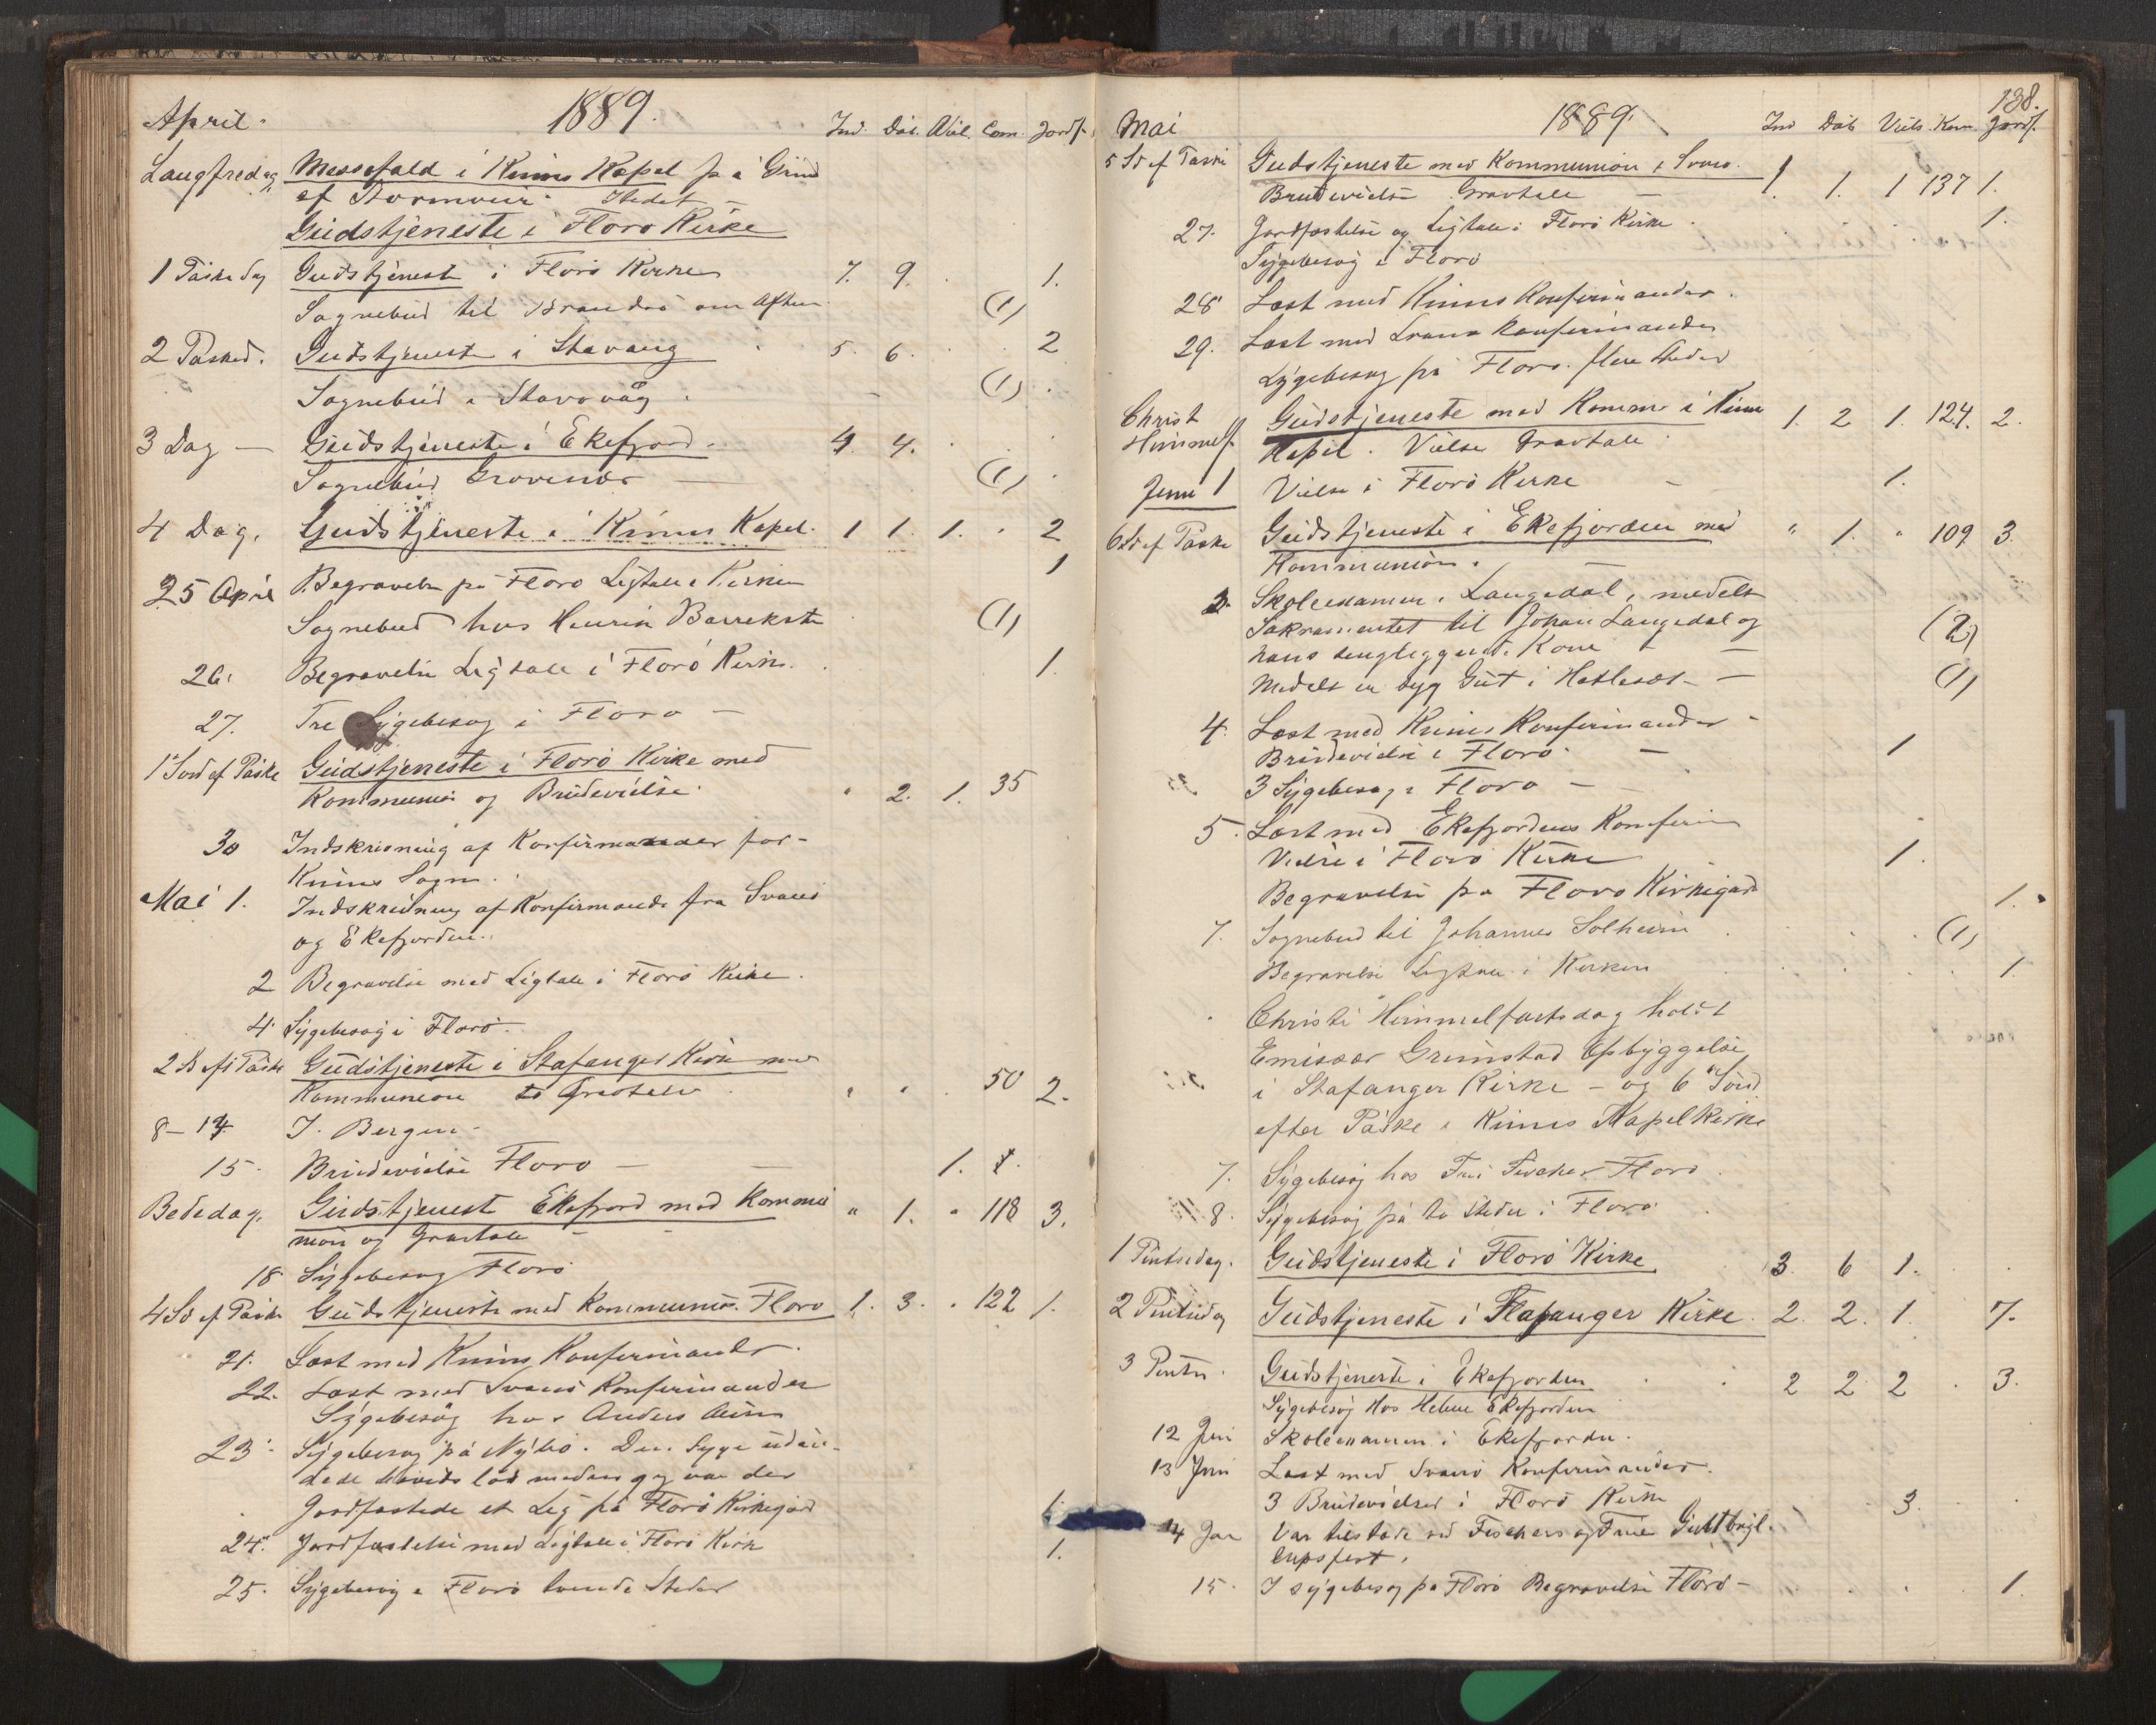 April. 1889. Ind. Dåb. Viel. Com. Jordf.
Langfredag Messefald i Kinns Kapel på Grund
af Stormveir. Istedet —
Gudstjeneste i Florø Kirke
1 Påskedag Gudstjenest i Florø Kirke 7. 9. 1.
Sognebud til Brandsø om Aften (1)
2 Påsked. Gudstjeneste i Stavang 5. 6. 2
Sognebud i Stavvåg (1)
3 Dag — Gudstjeneste i Ekefjord. 4. 4.
Sognebud (1)
4 Dag. Gudstjeneste i Kinns Kapel. 1 1. 1. 2
25 April Begravelse på Florø Ligtale i Kirken 1
Sognebud hos Henrik Barrekste (1)
26. Begravelse Ligtale i Florø Kirke. 1.
27. Tre Sygebesøg i Florø —
1 Sønd ef Påske Gudstjeneste i Florø Kirke med
Kommunion og Brudevielse. " 2. 1. 35
30 Indskrivning af Konfirmander for
Kinns Sogn.
Mai 1. Indskrivning af Konfirmander fra Svanø
og Ekefjorden.
2 Begravelse med Ligtale i Florø Kirke.
4. Sygebesøg i Florø.
2 S eft Påske Gudstjeneste i Stafanger Kirke med
Kommunion to Gravtaler " " 50 2.
8–14 I Bergen —
15. Brudevielse Florø — 1.
Bededag. Gudstjenest Ekefjord med Kommu " 1. " 118 3.
nion og Gravtale —
18 Sygebesøg Florø
4 Sø ef Påske Gudstjeneste med Kommunion Florø 1. 3. " 122 1.
21. Læst med Kinns Konfirmander.
22. Læst med Svanø Konfirmander
Sygebesøg hos Anders
23. Sygebesøg på Nybø. Den Syge udån-
dede medens jeg var der
Jordfæstede et Lig på Florø Kirkegård 1.
24. Jordfæstelse med Ligtale i Florø Kirke 1.
25. Sygebesøg i Florø tvende Steder
138.
Mai 1889. Ind Dåb Viels. Kom. Jordf.
5 Sø ef Påske Gudstjeneste med Kommunion i Svanø.
Brudevielse Gravtale — 1. 1. 1 137 1.
27. Jordfæstelse og Ligtale i Florø Kirke. 1.
Sygebesøg i Florø
28 Læst med Kinns Konfirmander.
29. Læst med Svanø Konfirmander
Sygebesøg på Florø flere Steder
Christ Gudstjeneste med Komm. i Kinn 1. 2 1. 124. 2.
Himmelf. Kapel. Vielse Gravtale.
Juni 1 Vielse i Florø Kirke — 1.
6 Sø ef Påske Gudstjeneste i Ekefjorden med " 1. " 109 3.
Kommunion.
3. Skoleexamen i Langedal, meddelt
Sakramentet til Johan Langedal og (2)
hans sengliggende Kone —
Meddelt en syg Gut i Hatleset — (1)
4. Læst med Kinns Konfirmander —
Brudevielse i Florø — 1
3 Sygebesøg i Florø —
5. Læst med Ekefjordens Konfirm
Vielse i Florø Kirke 1.
Begravelse på Florø Kirkegård 1.
7. Sognebud til Johannes Solheim (1)
Begravelse Ligtale i Kirken 1.
Christi Himmelfartsdag holdt
Emissær Grimstad Opbyggelse
i Stafanger Kirke – og 6 Sønd
efter Påske i Kinns Kapel Kirke
7. Sygebesøg hos Fru Fischer Florø
8. Sygebesøg på to Steder i Florø
1 Pintsedag. Gudstjeneste i Florø Kirke 3. 6 1.
2 Pintsedag Gudstjeneste i Stafanger Kirke. 2. 2. 1. 7.
3 Pintse. Gudstjeneste i Ekefjorden 2 2 2 3.
Sygebesøg hos Helene Ekefjorden
12 Juni Skoleexamen i Ekefjorden.
13 Juni Læst med Svanø Konfirmander.
3 Brudevielser i Florø Kirke 3.
14 Jun Var tilstede ved Fischers og Frue Guldbryl-
lupsfest.
15. I sygebesøg på Florø Begravelse Florø — 1.